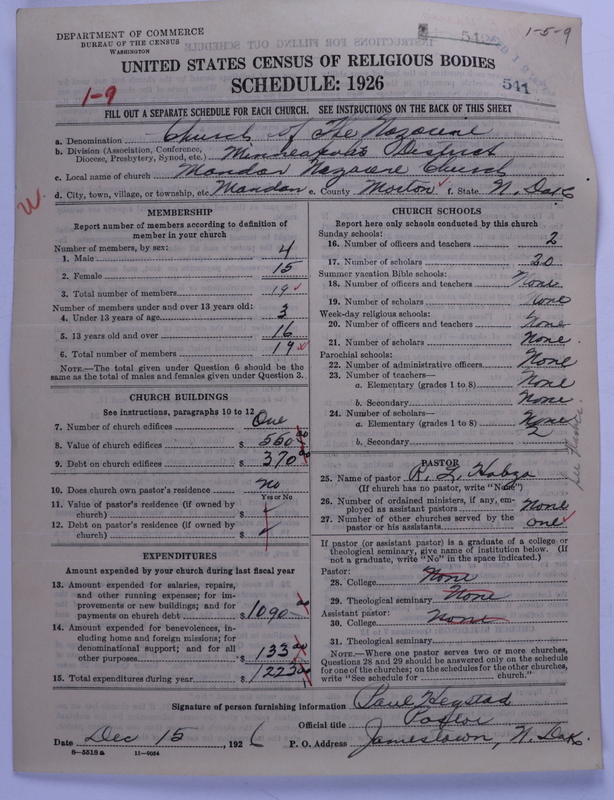 DEPARTMENT OF COMMERCE
BUREAU OF THE CENSUS
WASHINGTON
1-5-9
UNITED STATES CENSUS OF RELIGIOUS BODIES
SCHEDULE: 1926
1-9
541
FILL OUT A SEPARATE SCHEDULE FOR EACH CHURCH. SEE INSTRUCTIONS ON THE BACK OF THIS SHEET
a. Denomination Church of The Nazarene
b. Division (Association, Conference, Diocese, Presbytery, Synod, etc.) Minneapolis District
c. Local name of church Mandan Nazarene Church
d. City, town, village, or township, etc. Mandan e. County Morton f. State N. Dak
W.
MEMBERSHIP
Report number of members according to definition of member in your church
Number of members, by sex:
1. Male 4
2. Female 15
3. Total number of members 19
Number of members under and over 13 years old:
4. Under 13 years of age 3
5. 13 years old and over 16
6. Total number of members 19
NOTE.—The total given under Question 6 should be the same as the total of males and females given under Question 3.
CHURCH BUILDINGS
See instructions, paragraphs 10 to 12
7. Number of church edifices One
8. Value of church edifices $ 550 00
9. Debt on church edifices $ 370 00
10. Does church own pastor's residence No
Yes or No
11. Value of pastor's residence (if owned by church) $
12. Debt on pastor's residence (if owned by church) $
EXPENDITURES
Amount expended by your church during last fiscal year
13. Amount expended for salaries, repairs, and other running expenses; for improvements or new buildings; and for payments on church debt $ 1090 00
14. Amount expended for benevolences, including home and foreign missions; for denominational support; and for all other purposes $ 133 00
15. Total expenditures during year $ 1223 00
CHURCH SCHOOLS
Report here only schools conducted by this church
Sunday schools:
16. Number of officers and teachers 2
17. Number of scholars 20
Summer vacation Bible schools:
18. Number of officers and teachers None
19. Number of scholars None
Week-day religious schools:
20. Number of officers and teachers None
21. Number of scholars None
Parochial schools:
22. Number of administrative officers None
23. Number of teachers—
a. Elementary (grades 1 to 8) None
b. Secondary None
24. Number of scholars—
a. Elementary (grades 1 to 8) None
b. Secondary 2
PASTOR
25. Name of pastor R. L.
(If church has no pastor, write "None")
26. Number of ordained ministers, if any, employed as assistant pastors None
27. Number of other churches served by the pastor or his assistants One
If pastor (or assistant pastor) is a graduate of a college or theological seminary, give name of institution below. (If not a graduate, write "No" in the space indicated.)
Pastor:
28. College None
29. Theological seminary None
Assistant pastor:
30. College None
31. Theological seminary
NOTE.—Where one pastor serves two or more churches, Questions 28 and 29 should be answered only on the schedule for one of the churches; on the schedules for the other churches, write "See schedule for church."
Signature of person furnishing information Paul Hegstad
Official title Pastor
Date Dec 15, 1926 P. O. Address Jamestown, N. Dak.
8—5518a 11—9054